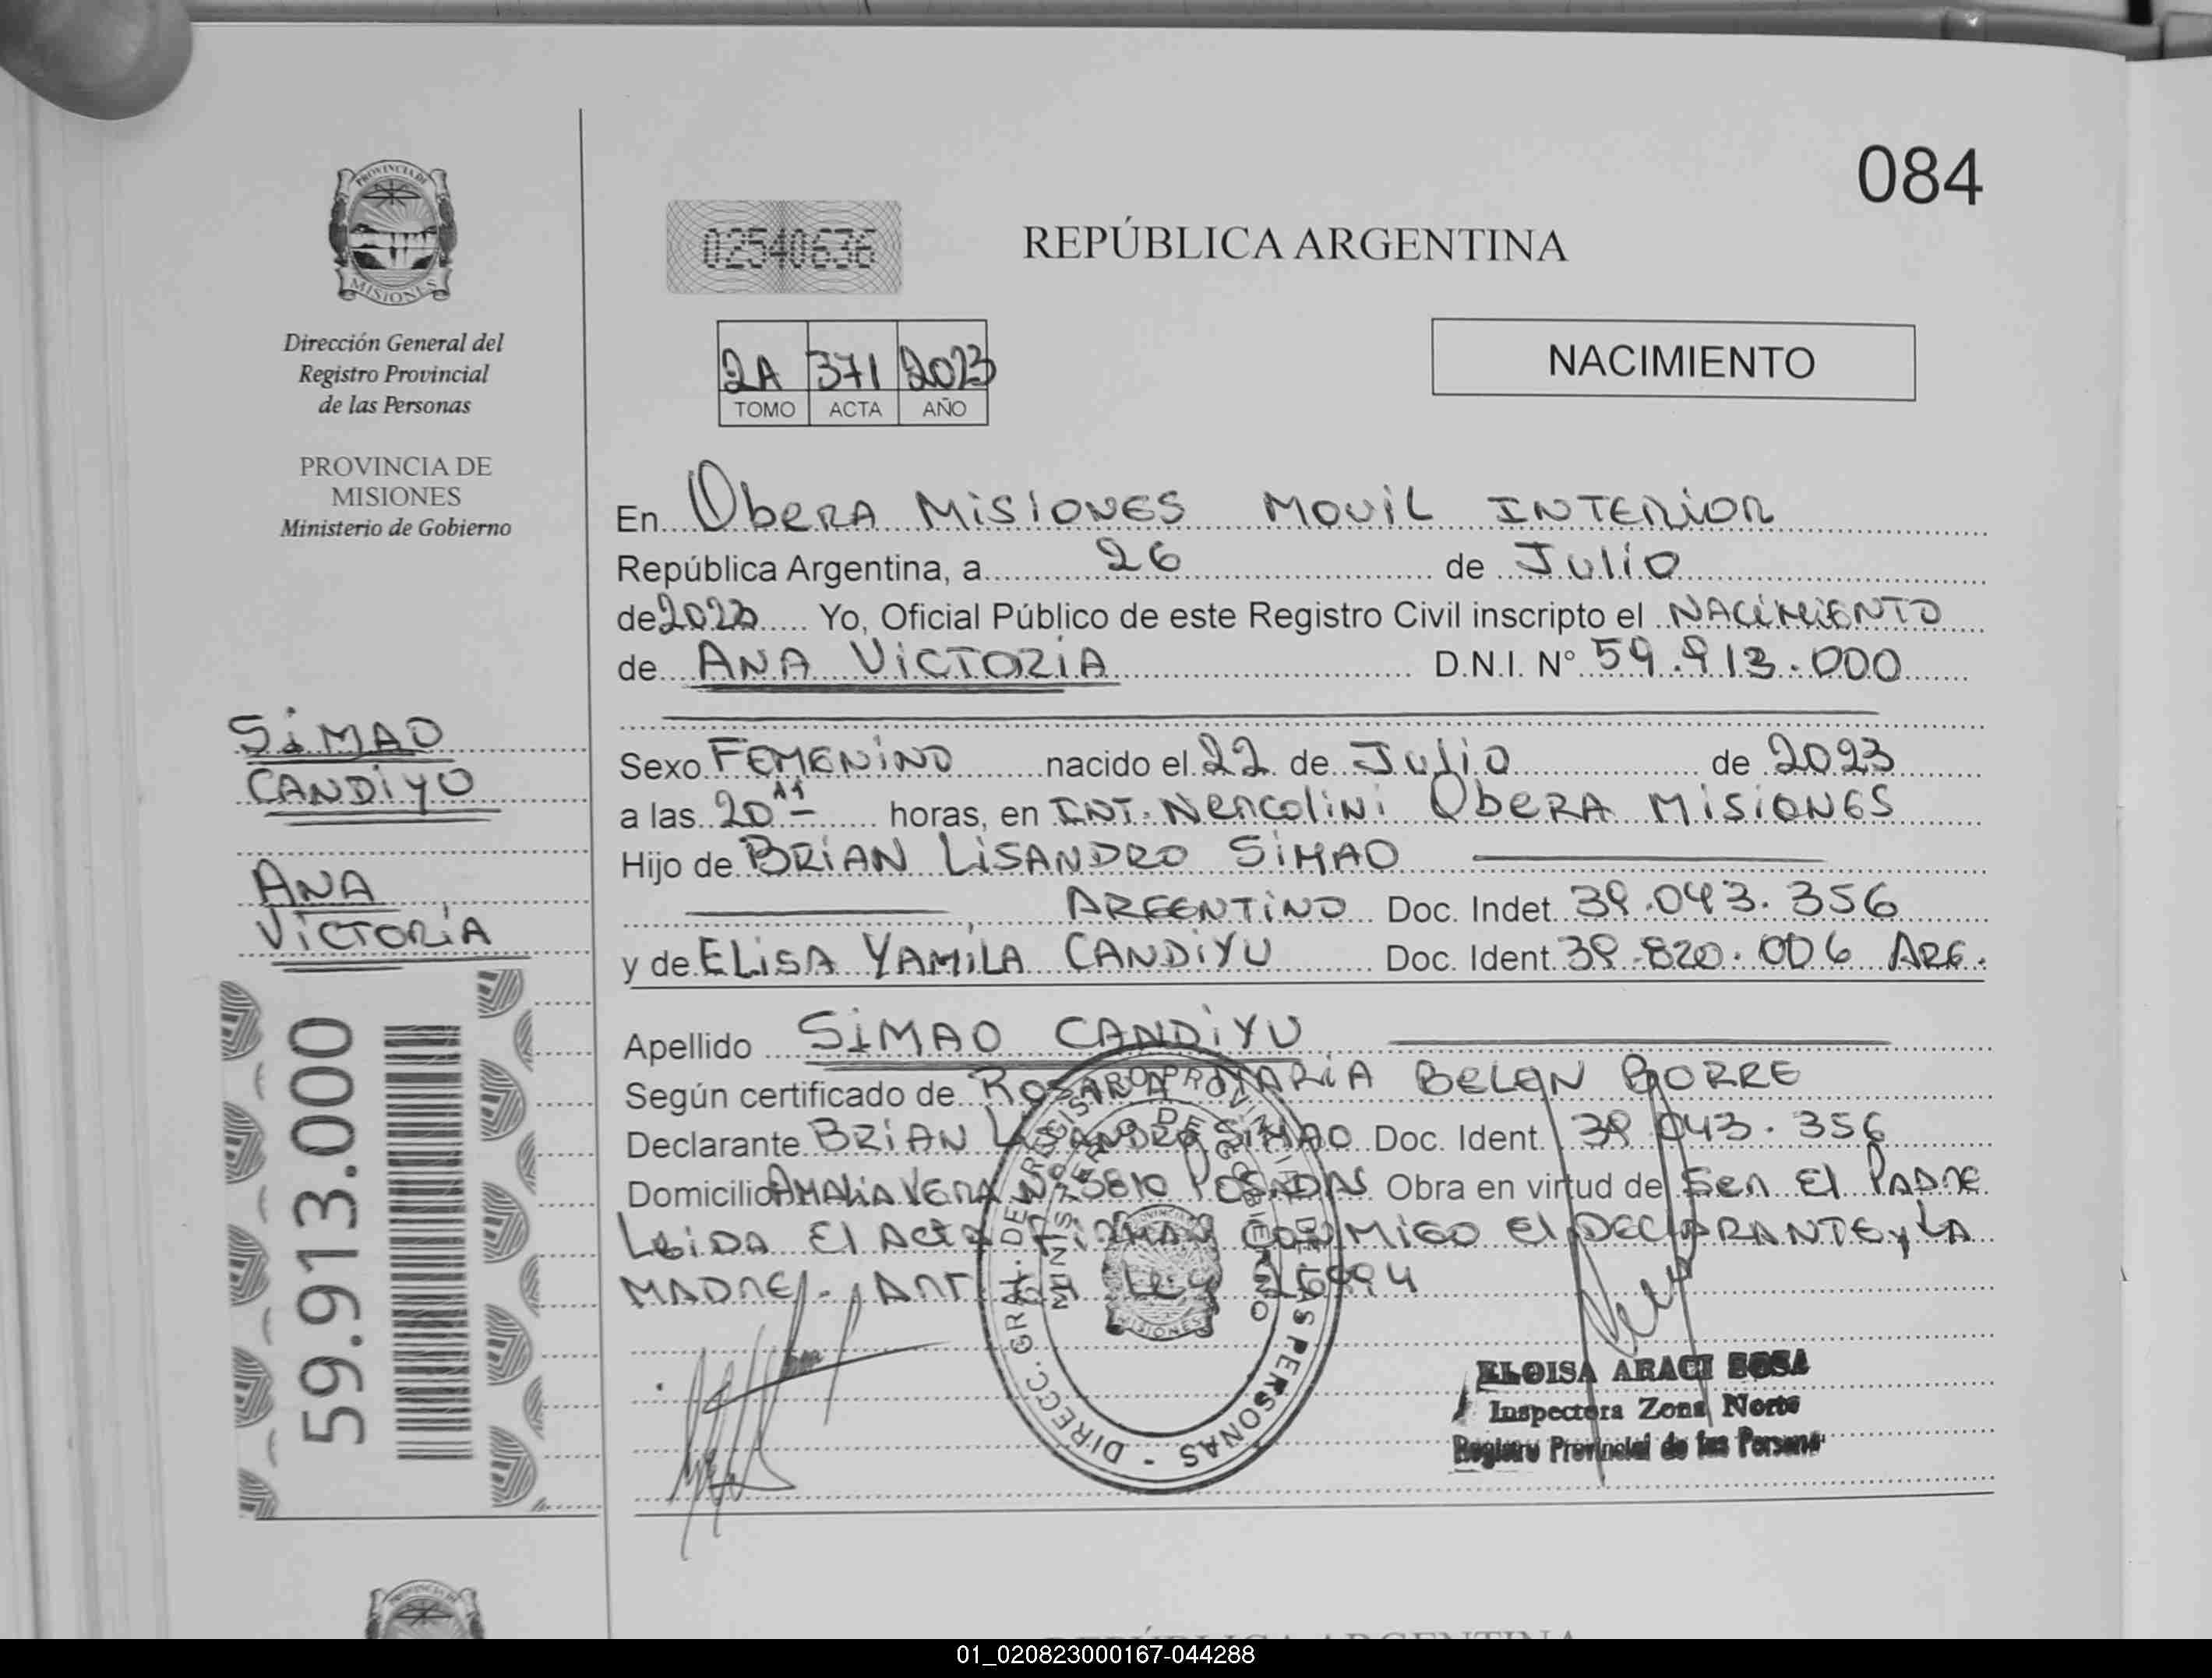 084
PROVINCIA DE
MISIONES
Dirección General del
Registro Provincial
de las Personas
PROVINCIA DE
MISIONES
Ministerio de Gobierno
SiMAO
CANDiYU
ANA
VICTORiA
59.913.000
02540636
REPÚBLICA ARGENTINA
2A 371 2023
TOMO ACTA AÑO
NACIMIENTO
En ObeRA MiSiONES MOViL INTERiOR
República Argentina, a 26 de Julio
de 2023 Yo, Oficial Público de este Registro Civil inscripto el NACiMiENTO
de ANA ViCTORiA D.N.I. N° 59.913.000
Sexo FEMENiNO nacido el 22 de Julio de 2023
a las 20 11 horas, en INT. Nencolini ObeRA MiSiONES
Hijo de BRiAN LiSANDRO SiMAO
ARGENTiNO Doc. Indet. 39.043.356
y de ELiSA YAMiLA CANDiYU Doc. Ident. 39.820.006 ARG.
Apellido SiMAO CANDiYU
Según certificado de MARiA BELEN BORRE
Declarante BRiAN LiSANDRO SiMAO Doc. Ident. 39.043.356
Domicilio AMALiA VERA N° 5810 POSADAS Obra en virtud de Ser El PADRE
LeiDA El Acta FiRMAN CONMiGO El DECLARANTE y LA
MADRE. ART. Ley 26994
DIRECC. GRAL. DE REGISTRO PROVINCIAL DE LAS PERSONAS
MINISTERIO DE GOBIERNO
PROVINCIA DE
MISIONES
ELOISA ARACI SOSA
Inspectora Zona Norte
Registro Provincial de las Personas
REPÚBLICA ARGENTINA
01_020823000167-044288